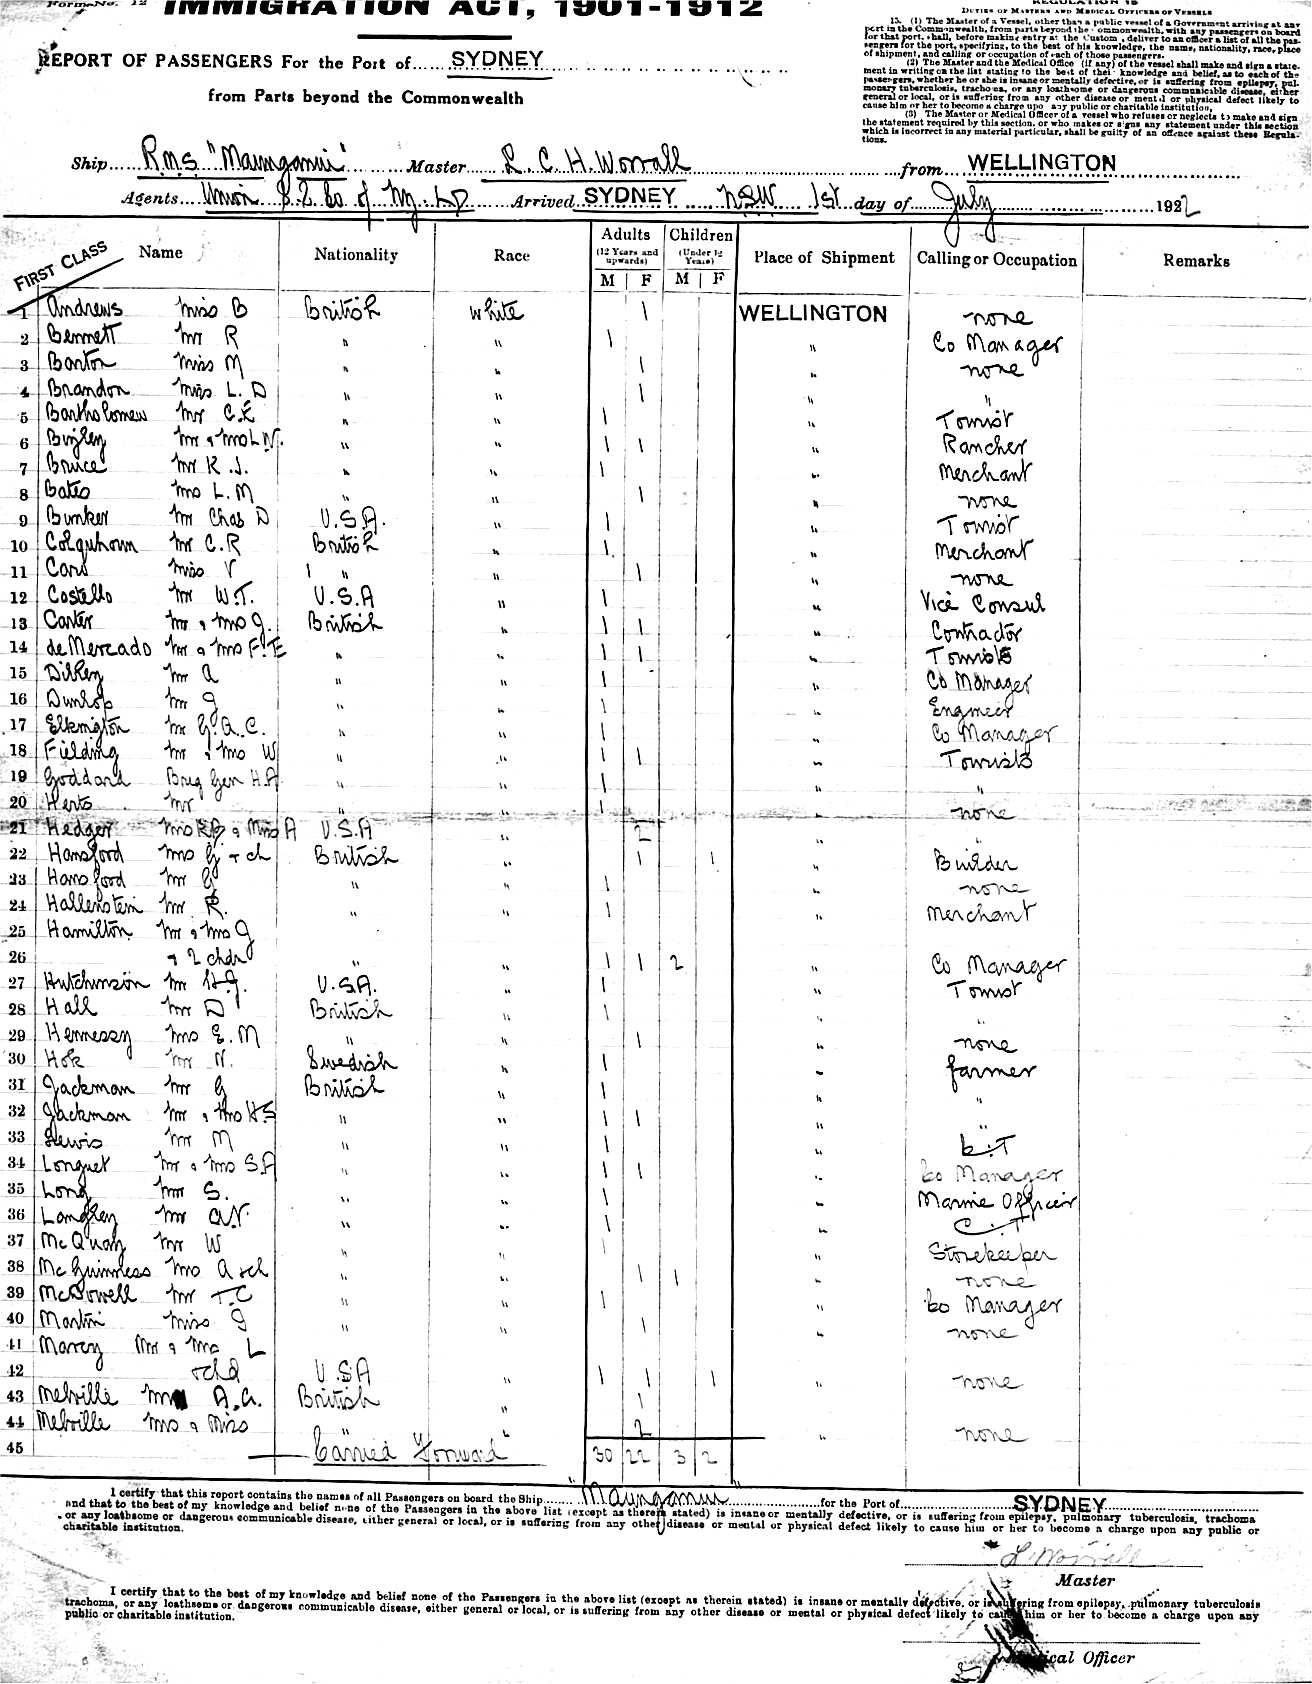 Form No. 12
IMMIGRATION ACT, 1901-1912
REGULATION 15
DUTIES OF MASTERS AND MEDICAL OFFICERS OF VESSELS
13. (1) The Master of a Vessel, other than a public vessel of a Government arriving at any
port in the Commonwealth, from parts beyond the Commonwealth, with any passengers on board
for that port, shall, before making entry at the Custom, deliver to an officer a list of all the pas-
sengers for the port, specifying, to the best of his knowledge, the name, nationality, race, place
of shipment, and calling or occupation of each of those passengers.
(2) The Master and the Medical Office (if any) of the vessel shall make and sign a state-
ment in writing on the list stating to the best of their knowledge and belief, as to each of the
passengers, whether he or she is insane or mentally defective, or is suffering from epilepsy, pul-
monary tuberculosis, trachoma, or any loathsome or dangerous communicable disease, either
general or local, or is suffering from any other disease or mental or physical defect likely to
cause him or her to become a charge upon any public or charitable institution.
(3) The Master or Medical Officer of a vessel who refuses or neglects to make and sign
the statement required by this section, or who makes or signs any statement under this section
which is incorrect in any material particular, shall be guilty of an offence against these Regula-
tions.
REPORT OF PASSENGERS For the Port of SYDNEY
from Parts beyond the Commonwealth
Ship R.M.S "Maunganui" Master L. C. H. Worrall from WELLINGTON
Agents Union S.S. Co of NZ. Ltd Arrived SYDNEY NSW 1st day of July 1922
FIRST CLASS Name Nationality Race Adults (12 Years and upwards) Children (Under 12 Years) Place of Shipment Calling or Occupation Remarks
M F M F
1 Andrews Miss B British White 1 WELLINGTON none
2 Bennett Mr R " " 1 " Co Manager
3 Banton Miss M " " 1 " none
4 Brandon Miss L. D " " 1 " "
5 Bartholomew Mr C.E " " 1 " Tourist
6 Mr & Mrs L.N. " " 1 1 " Rancher
7 Bruce Mr R.J. " " 1 " Merchant
8 Bates Mrs L.M " " 1 " none
9 Bunker Mr Chas D U.S.A. " 1 " Tourist
10 Colquhoun Mr C.R British " 1 " Merchant
11 Miss V " " 1 " none
12 Costello Mr W.T. U.S.A " 1 " Vice Consul
13 Carter Mr & Mrs J. British " 1 1 " Contractor
14 de Mercado Mr & Mrs F.E " " 1 1 " Tourists
15 Mr A " " 1 " Co Manager
16 Dunlop Mr J " " 1 " Engineer
17 Elkington Mr G.A.C. " " 1 " Co Manager
18 Fielding Mr & Mrs W " " 1 1 " Tourists
19 Goddard Brig Gen H.A " " 1 " "
20 Herts Mr " " 1 " none
21 Hedger Mrs & Miss A U.S.A " 2 "
22 Hansford Mrs G & ch British " 1 1 " Builder
23 Hansford Mr G " " 1 " none
24 Hallenstein Mr R. " " 1 " Merchant
25 Hamilton Mr & Mrs G
26 & 2 chdn " " 1 1 2 " Co Manager
27 Hutchinson Mr H.J. U.S.A. " 1 " Tourist
28 Hall Mr D British " 1 " "
29 Hennessy Mrs E.M " " 1 " none
30 Hok Mr N. Swedish " 1 " farmer
31 Jackman Mr G British " 1 " "
32 Jackman Mr & Mrs H.S " " 1 1 " "
33 Lewis Mr M " " 1 " C.T
34 Longuet Mr & Mrs S.A " " 1 1 " Co Manager
35 Long Mr S. " " 1 " Marine Officer
36 Langley Mr A.N. " " 1 " C.T
37 McQuay Mr W " " 1 " Storekeeper
38 McGuinness Mrs A & ch " " 1 1 " none
39 McDowell Mr T.C " " 1 " Co Manager
40 Martin Miss J " " 1 " none
41 Mr & Mrs L
42 & chd U.S.A " 1 1 1 " none
43 Melville A.G. British " 1
44 Melville Mrs & Miss " " 2 " none
45 Carried Forward 30 22 3 2
I certify that this report contains the names of all Passengers on board the Ship "Maunganui" for the Port of SYDNEY
and that to the best of my knowledge and belief none of the Passengers in the above list (except as therein stated) is insane or mentally defective, or is suffering from epilepsy, pulmonary tuberculosis, trachoma
or any loathsome or dangerous communicable disease, either general or local, or is suffering from any other disease or mental or physical defect likely to cause him or her to become a charge upon any public or
charitable institution.
L Worrall
Master
I certify that to the best of my knowledge and belief none of the Passengers in the above list (except as therein stated) is insane or mentally defective, or is suffering from epilepsy, pulmonary tuberculosis
trachoma, or any loathsome or dangerous communicable disease, either general or local, or is suffering from any other disease or mental or physical defect likely to cause him or her to become a charge upon any
public or charitable institution.
Medical Officer